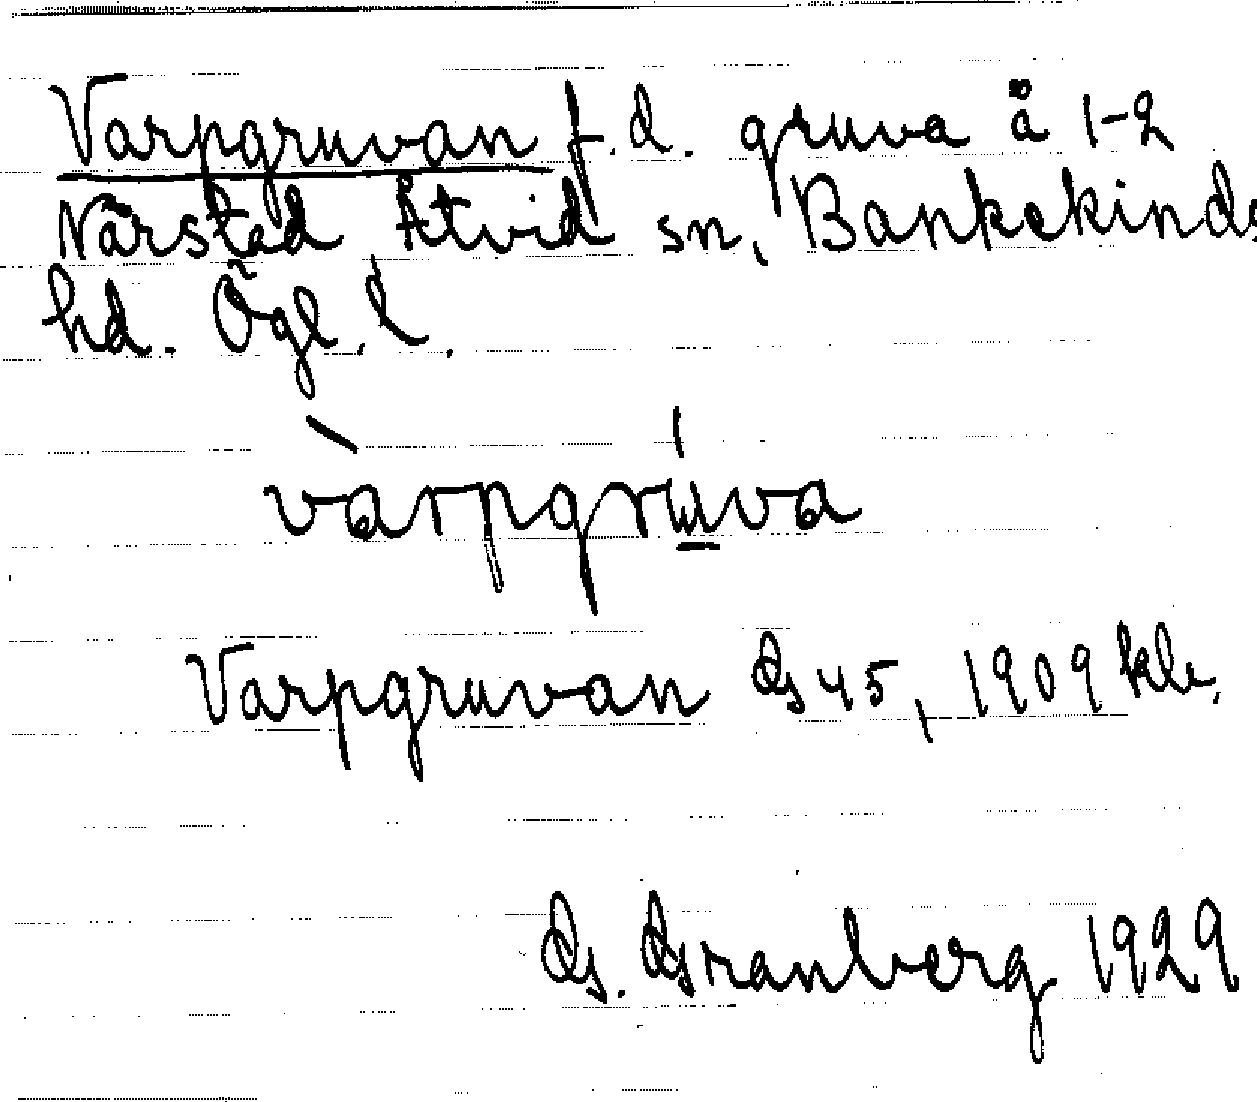 Varpgruvan f.d. gruva å 1-2
Närstad Åtvid sn, Bankekinds
hd. Ögl. l.
vàrpgrúva
Varpgruvan Gs 45, 1909 kle.
G. Granberg 1929